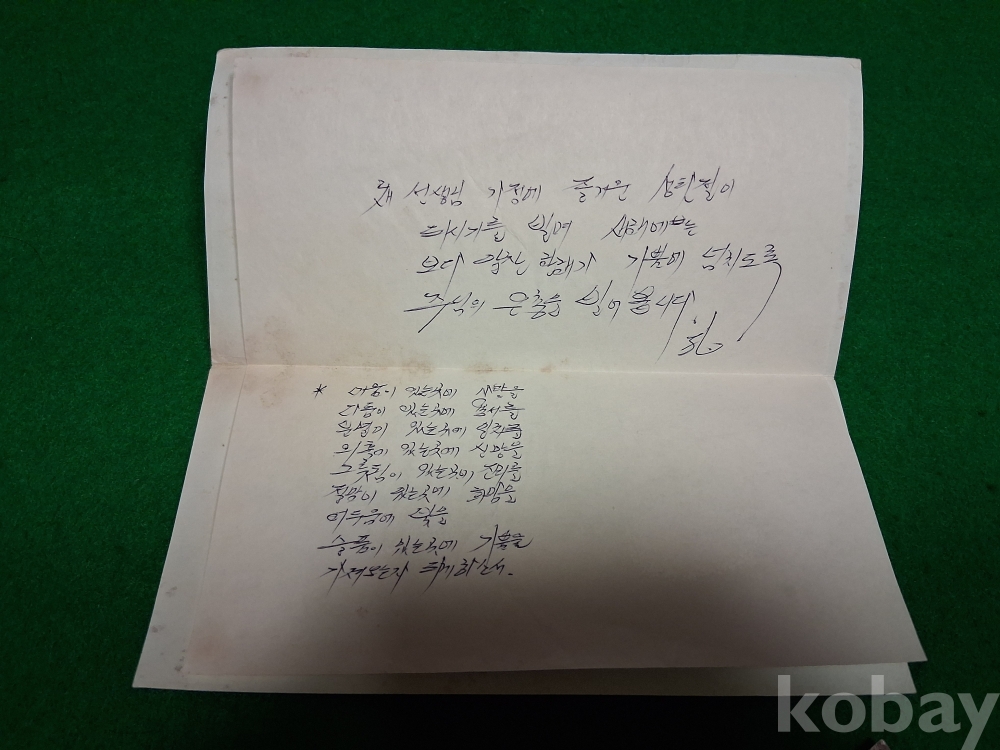 선생님 가정에 즐거운 성탄절이
되시기를 빌며 새해에는
보다 알찬 한해가 기쁨에 넘치도록
주님의 은총을 빌어 봅니다.
* 미움이 있는곳에 사랑을
다툼이 있는곳에 용서를
분열이 있는곳에 일치를
의혹이 있는곳에 신앙을
그릇됨이 있는곳에 진리를
절망이 있는곳에 희망을
어두움에 빛을
슬픔이 있는곳에 기쁨을
가져오는자 되게 하소서.
kobay